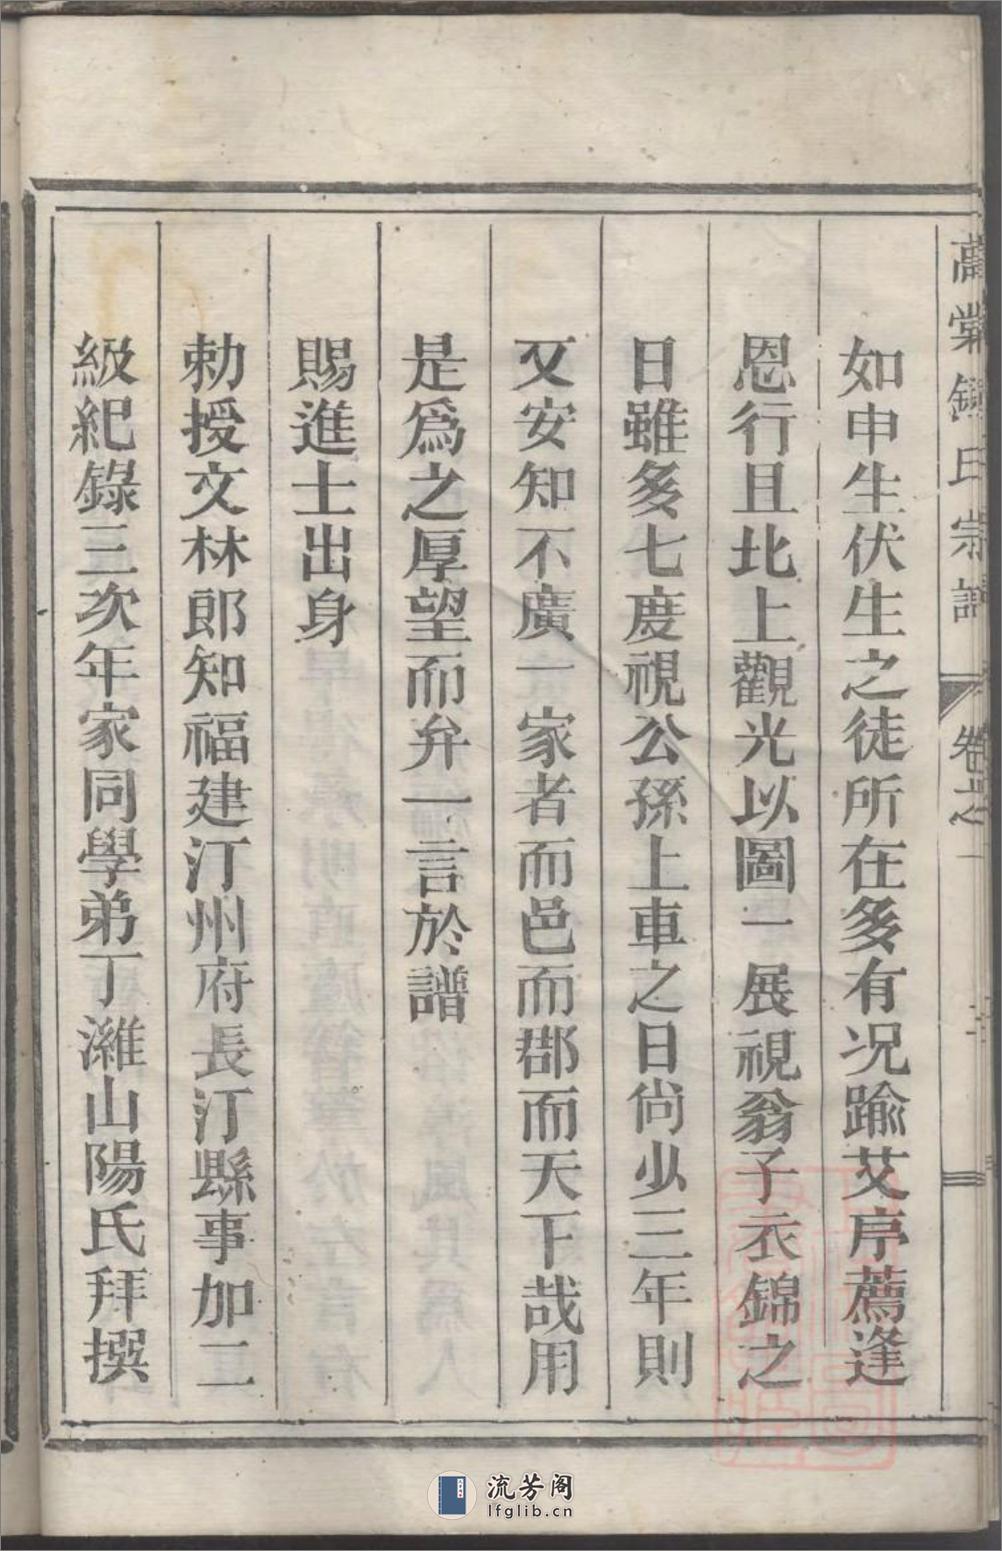 如申生伏生之徒所在多有况踰艾序薦逢
恩行且北上觀光以圖一展視翁子衣錦之
日雖多七度視公孫上車之日尙少三年則
又安知不廣一家者而邑而郡而天下哉用
是爲之厚望而弁一言於譜
賜進士出身
勅授文林郎知福建汀州府長汀縣事加二
級紀錄三次年家同學弟丁濰山陽氏拜撰
氏宗譜
卷之一
流芳阁
lfglib.cn